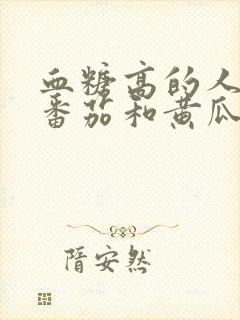 血糖高的人
番茄和黄瓜
隋安然